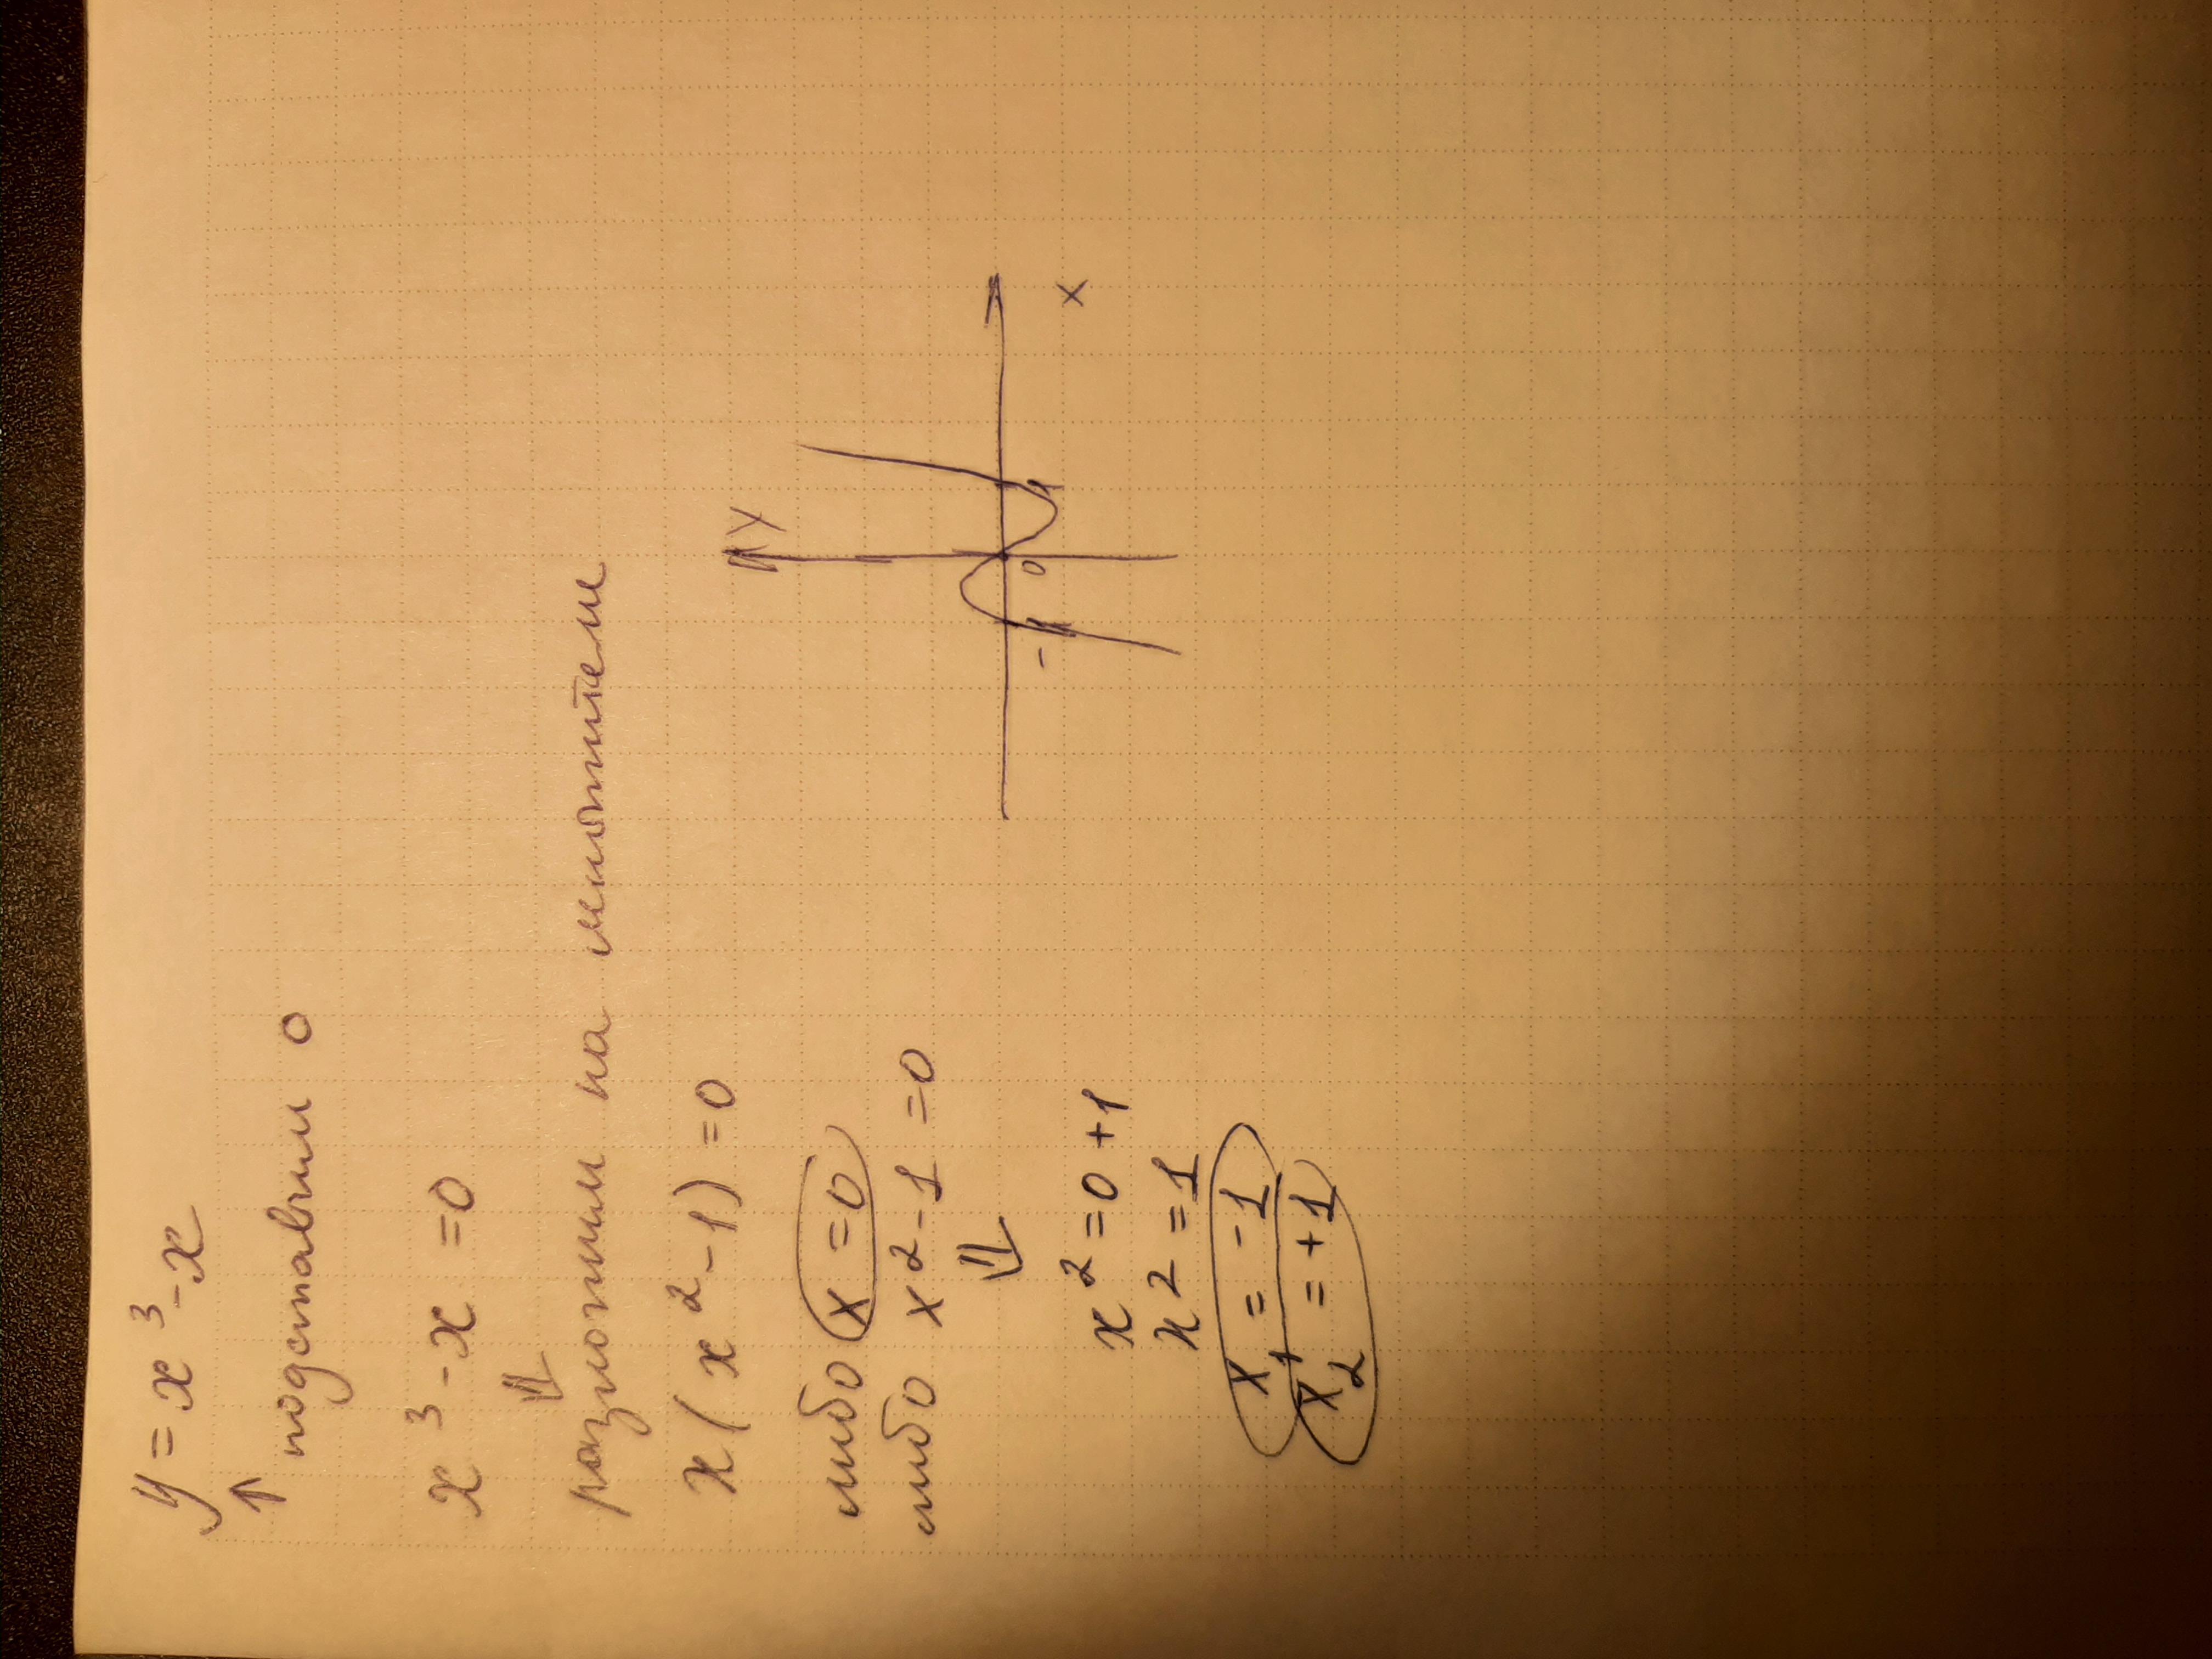 y = x³ - x
↑
подставим 0
x³ - x = 0
⇓
разложим на множители
x(x² - 1) = 0
либо x = 0
либо x² - 1 = 0
⇓
x² = 0 + 1
x² = 1
x₁ = -1
x₂ = +1
y
-1
0
1
x